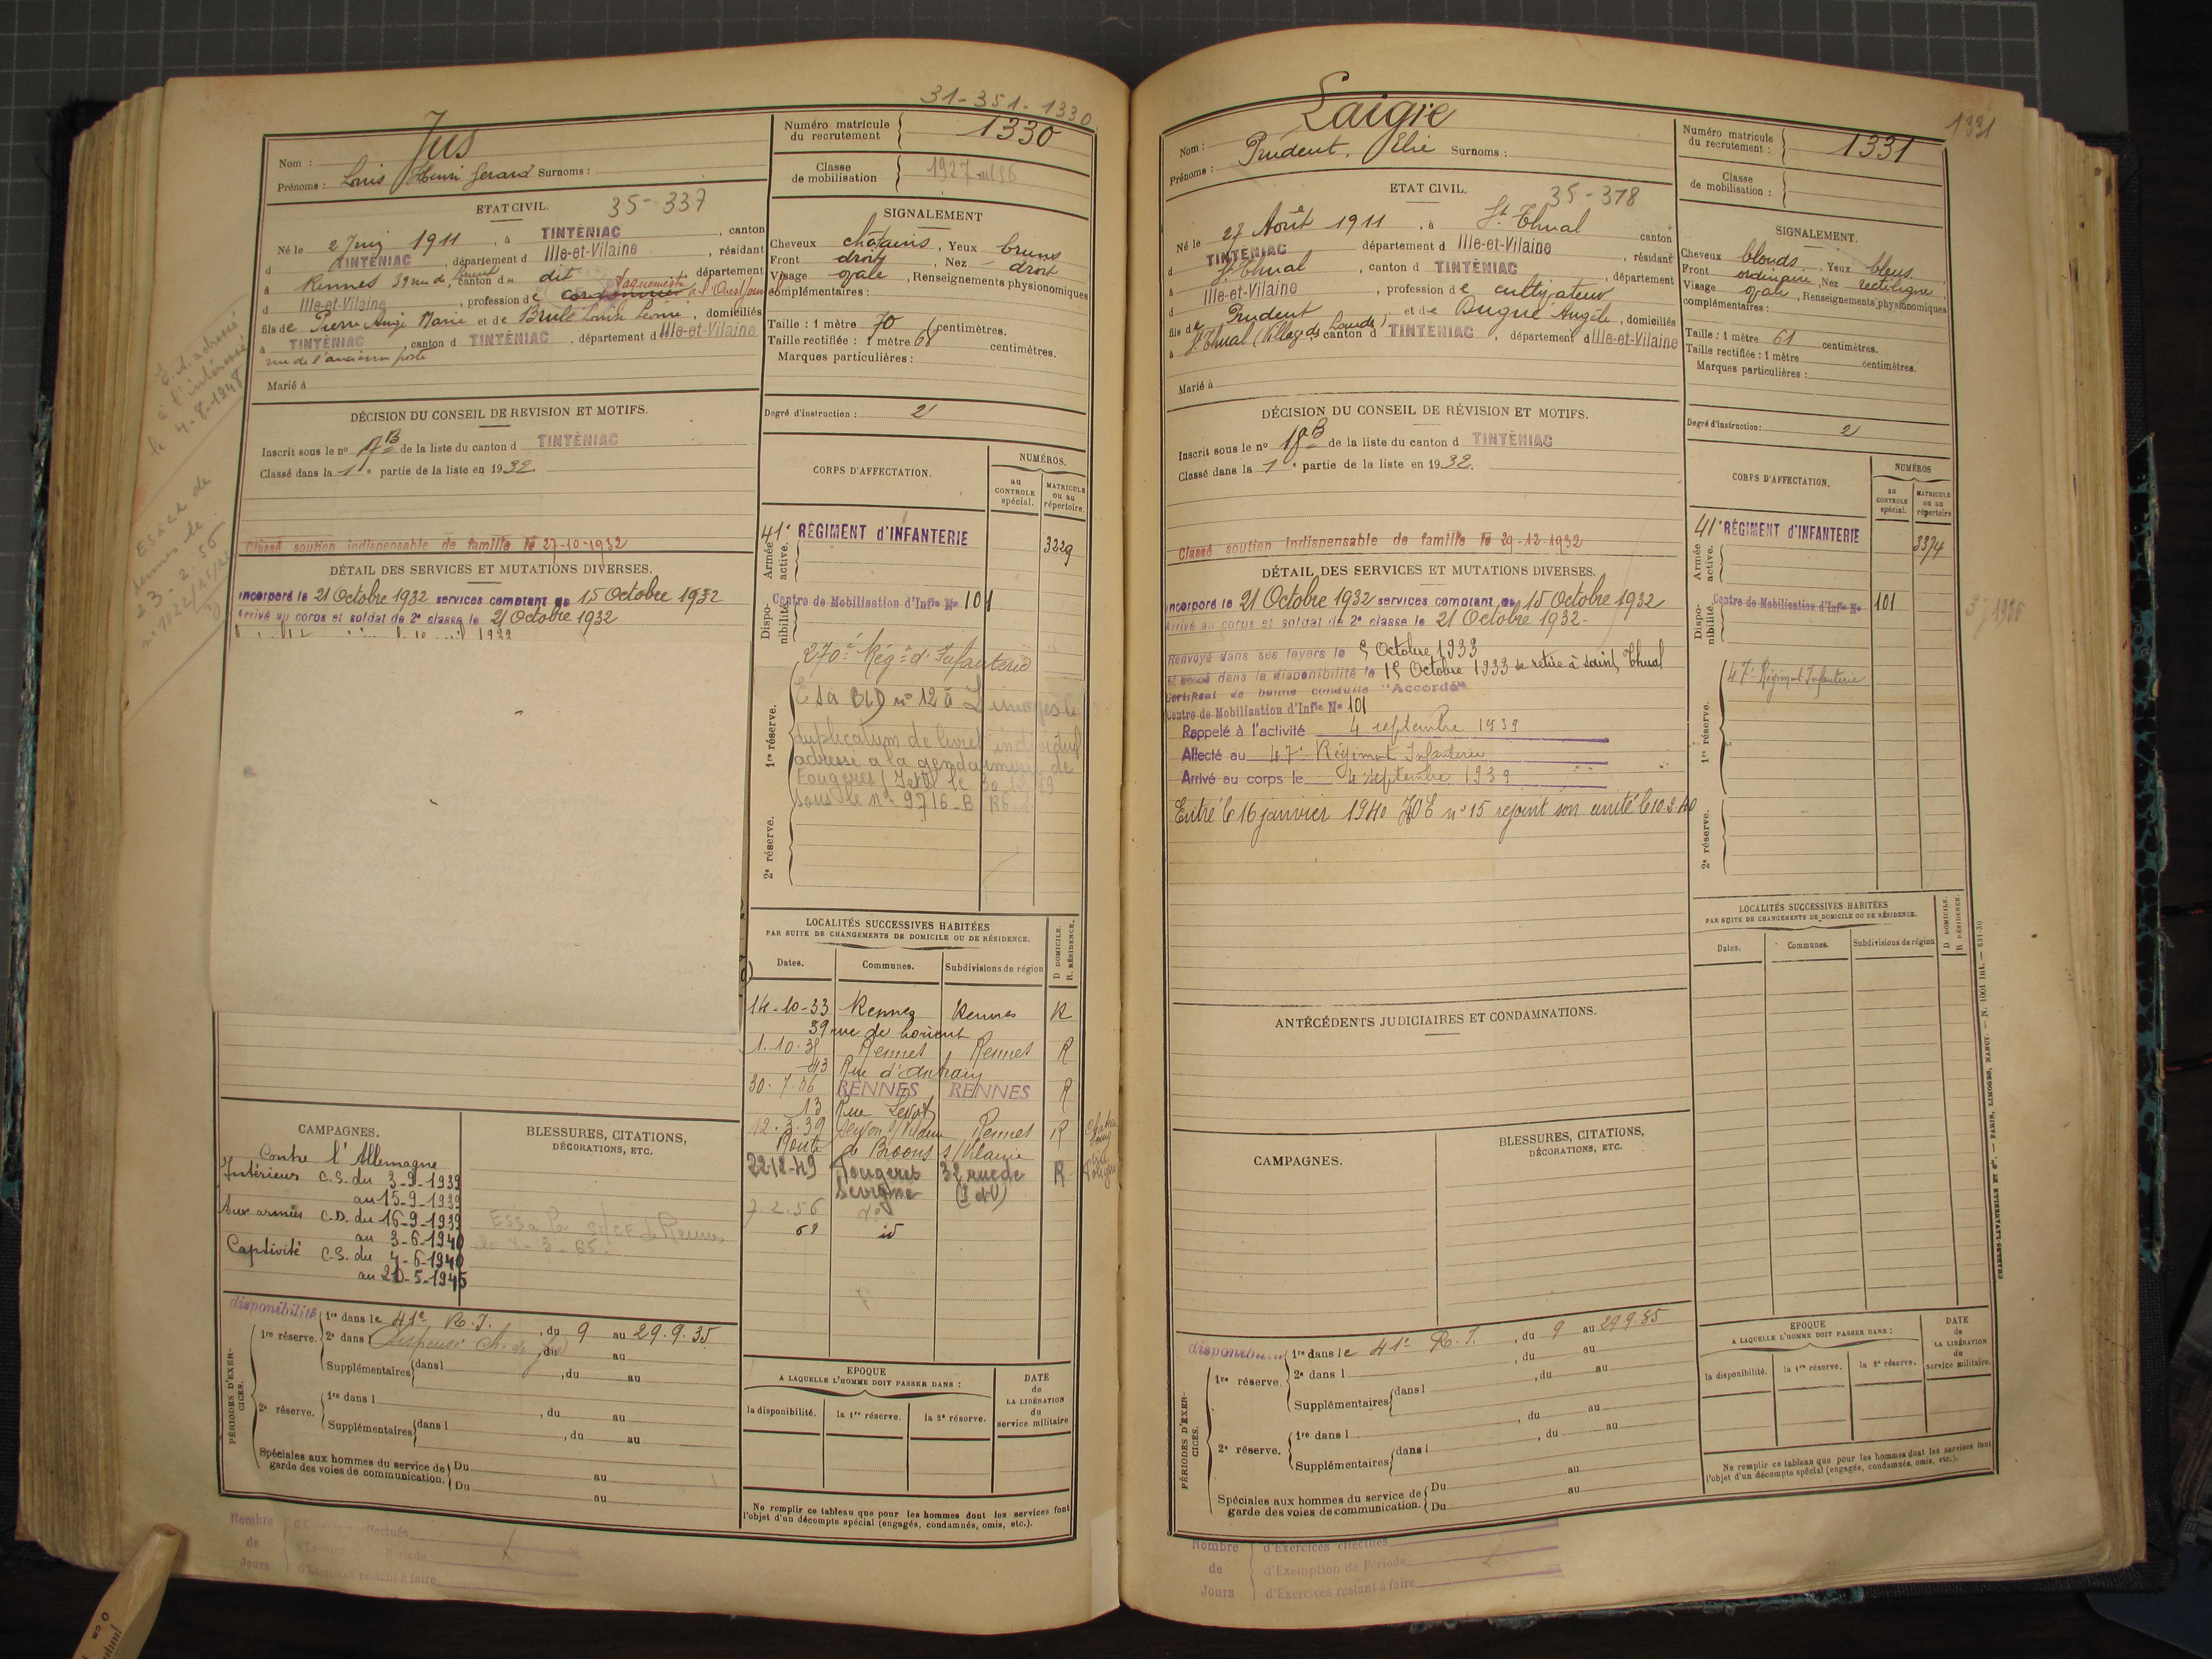 31-351-1330
Nom : Jus
Prénoms : Louis Henri Gerard Surnoms :
Numéro matricule du recrutement 1330
Classe de mobilisation 1927
ETAT CIVIL. 35-337
Né le 2 Juin 1911, à TINTÉNIAC, canton
d TINTÉNIAC, département d Ille-et-Vilaine, résidant
à Rennes 39 rue de Lorient, canton du dit, département
d Ille-et-Vilaine, profession de cordonnier Vaguemestre à l'Ouest
fils de Pierre Ange Marie et de Brulé Louise Léonie, domiciliés
à TINTÉNIAC, canton d TINTÉNIAC, département d Ille-et-Vilaine
rue de l'ancienne poste
Marié à
SIGNALEMENT
Cheveux châtains, Yeux bruns
Front droit, Nez droit
Visage ovale, Renseignements physionomiques
complémentaires :
Taille : 1 mètre 70 centimètres.
Taille rectifiée : 1 mètre 68 centimètres.
Marques particulières :
Degré d'instruction : 2
E.S. adressé
à l'intéressé
le 4-8-1948
DÉCISION DU CONSEIL DE REVISION ET MOTIFS.
Inscrit sous le nº 17B de la liste du canton d TINTÉNIAC
Classé dans la 1e partie de la liste en 1932.
Classé soutien indispensable de famille le 27-10-1932
DÉTAIL DES SERVICES ET MUTATIONS DIVERSES.
Incorporé le 21 Octobre 1932 services comptant du 15 Octobre 1932
Arrivé au corps et soldat de 2e classe le 21 Octobre 1932
CORPS D'AFFECTATION.
NUMÉROS.
AU CONTROLE spécial.
MATRICULE OU AU répertoire.
Armée active.
41e RÉGIMENT d'INFANTERIE 3229
Disponibilité
Centre de Mobilisation d'Infie No 101
1re réserve.
270e Régt d'Infanterie
ESà BLD nº 12 à Limoges le
duplicatum de livret individuel
adressé à la gendarmerie de
Fougères (I et V) le 30.12.49
sous le nº 9716-B
2e réserve.
LOCALITÉS SUCCESSIVES HABITÉES
PAR SUITE DE CHANGEMENTS DE DOMICILE OU DE RÉSIDENCE.
Dates. Communes. Subdivisions de région
D DOMICILE. R. RÉSIDENCE.
14-10-33 Rennes Rennes R
39 rue de Lorient
1.10.35 Rennes Rennes R
43 Rue d'Antrain
30.7.36 RENNES RENNES R
13 Rue
12.3.39 Servon s/Vilaine Rennes R
Route de Broons s/Vilaine
22-12-49 Fougères 32 rue de R
Sévigné (I et V)
7.2.56 do
id
CAMPAGNES.
Contre l'Allemagne
Intérieur C.S. du 3-9-1939
au 15-9-1939
Aux armées C.D. du 16-9-1939
au 3-6-1940
Captivité C.S. du 4-6-1940
au 20-5-1945
BLESSURES, CITATIONS,
DÉCORATIONS, ETC.
PÉRIODES D'EXERCICES.
disponibilité
1re réserve. 1re dans le 41e R.I., du 9 au 29.9.35
2e dans l Dispensé, du au
Supplémentaires dans l, du au
2e réserve. 1re dans l, du au
Supplémentaires dans l, du au
Spéciales aux hommes du service de garde des voies de communication. Du au
Du au
EPOQUE
A LAQUELLE L'HOMME DOIT PASSER DANS :
la disponibilité. la 1re réserve. la 2e réserve.
DATE de LA LIBÉRATION du service militaire
Ne remplir ce tableau que pour les hommes dont les services font
l'objet d'un décompte spécial (engagés, condamnés, omis, etc.).
Nombre de Jours
d'Exercices effectués
d'Exercices restant à faire
1331
Nom : Laigre
Prénoms : Prudent, Elie Surnoms :
Numéro matricule du recrutement : 1331
Classe de mobilisation :
ETAT CIVIL. 35-378
Né le 27 Août 1911, à St Thual canton
d TINTÉNIAC département d Ille-et-Vilaine, résidant
à St Thual, canton d TINTÉNIAC, département
d Ille-et-Vilaine, profession de cultivateur
fils de Prudent et de Dugué Angèle, domiciliés
à St Thual (Village des Landes) canton d TINTÉNIAC, département d Ille-et-Vilaine
Marié à
SIGNALEMENT.
Cheveux blonds, Yeux bleus
Front ordinaire, Nez rectiligne
Visage ovale, Renseignements physionomiques
complémentaires :
Taille : 1 mètre 61 centimètres.
Taille rectifiée : 1 mètre centimètres.
Marques particulières :
Degré d'instruction : 2
DÉCISION DU CONSEIL DE RÉVISION ET MOTIFS.
Inscrit sous le nº 18B de la liste du canton d TINTÉNIAC
Classé dans la 1e partie de la liste en 1932.
Classé soutien indispensable de famille le 29-12-1932
DÉTAIL DES SERVICES ET MUTATIONS DIVERSES.
Incorporé le 21 Octobre 1932 services comptant du 15 Octobre 1932
Arrivé au corps et soldat de 2e classe le 21 Octobre 1932-
Renvoyé dans ses foyers le 5 Octobre 1933
et passé dans la disponibilité le 15 Octobre 1933 se retire à Saint Thual
Certificat de bonne conduite "Accordé"
Centre de Mobilisation d'Infie No 101
Rappelé à l'activité 4 septembre 1939
Affecté au 47e Régiment Infanterie
Arrivé au corps le 4 septembre 1939
Entré le 16 janvier 1940 HOE nº 15 rejoint son unité le 10.2.40
CORPS D'AFFECTATION.
NUMÉROS
AU CONTROLE spécial.
MATRICULE OU AU répertoire
Armée active.
41e RÉGIMENT d'INFANTERIE 3374
Disponibilité
Centre de Mobilisation d'Infie No 101
1re réserve.
47e Régiment Infanterie
2e réserve.
LOCALITÉS SUCCESSIVES HABITÉES
PAR SUITE DE CHANGEMENTS DE DOMICILE OU DE RÉSIDENCE.
Dates. Communes. Subdivisions de région
D DOMICILE. R RÉSIDENCE.
ANTÉCÉDENTS JUDICIAIRES ET CONDAMNATIONS.
CAMPAGNES.
BLESSURES, CITATIONS,
DÉCORATIONS, ETC.
PÉRIODES D'EXERCICES.
1re réserve. 1re dans le 41e R.I., du 9 au 29.9.35
2e dans l, du au
Supplémentaires dans l, du au
2e réserve. 1re dans l, du au
Supplémentaires dans l, du au
Spéciales aux hommes du service de garde des voies de communication. Du au
Du au
EPOQUE
A LAQUELLE L'HOMME DOIT PASSER DANS :
la disponibilité. la 1re réserve. la 2e réserve.
DATE de LA LIBÉRATION du service militaire.
Ne remplir ce tableau que pour les hommes dont les services font
l'objet d'un décompte spécial (engagés, condamnés, omis, etc.).
CHARLES-LAVAUZELLE ET Cie. — PARIS, LIMOGES, NANCY. — N. 1001 Int. — 831-30
Nombre de Jours
d'Exercices effectués
d'Exemption de Période
d'Exercices restant à faire